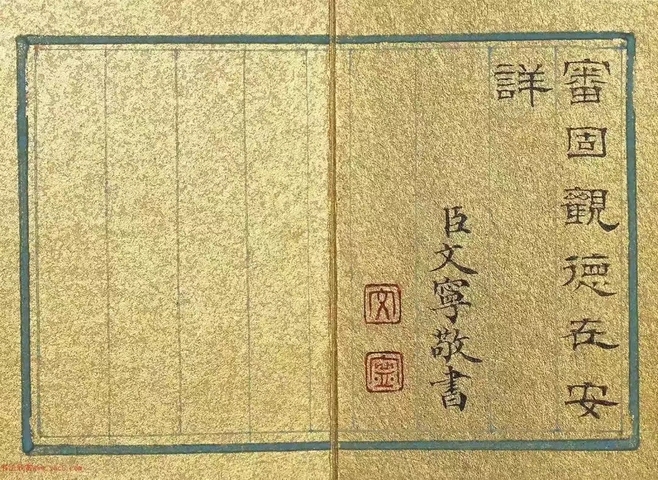 審固觀德在安
詳
臣文寧敬書
文